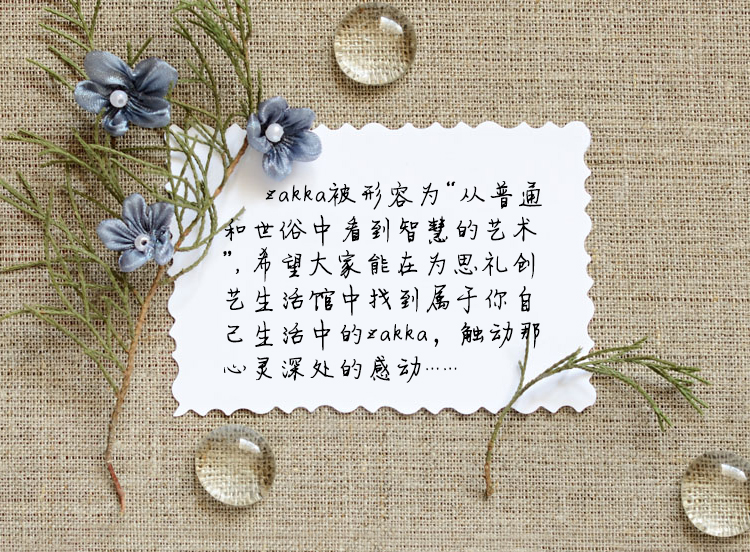 zakka被形容为“从普通
和世俗中看到智慧的艺术
”，希望大家能在为思礼创
艺生活馆中找到属于你自
己生活中的zakka，触动那
心灵深处的感动……